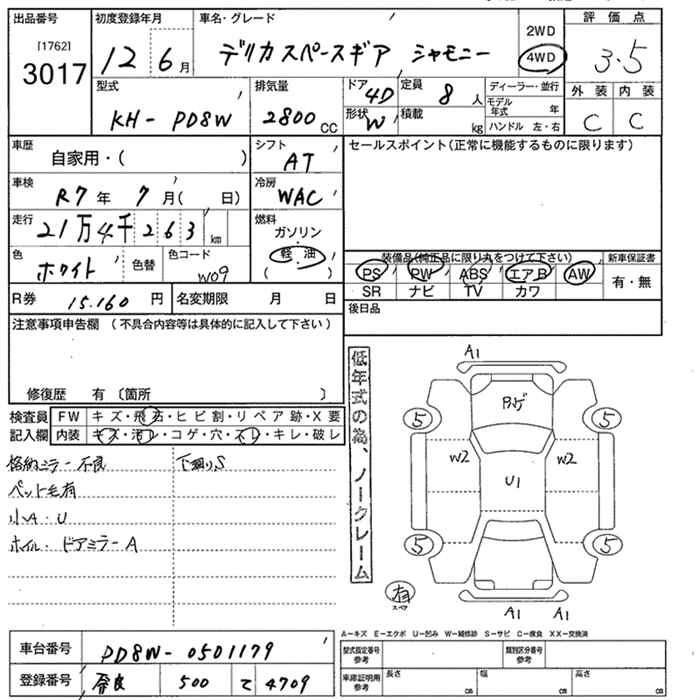 出品番号 初度登録年月 車名・グレード 2WD 評価点
[1762]
3017 12 6月 デリカスペースギア シャモニー 4WD 3.5
型式 排気量 ドア 4D 定員 8人 ディーラー・並行 外装 内装
モデル年式 年
KH-PD8W 2800cc 形状 W 積載 kg ハンドル 左・右 C C
車歴 自家用・( ) シフト AT セールスポイント(正常に機能するものに限ります)
車検 R7年 7月( 日) 冷房 WAC
走行 21万4千263km 燃料 ガソリン
軽油
( )
色 ホワイト 色替 色コード W09
装備品(純正品に限り丸をつけて下さい) 新車保証書
PS PW ABS エアB AW 有・無
SR ナビ TV カワ
R券 15.160円 名変期限 月 日 後日品
注意事項申告欄(不具合内容等は具体的に記入して下さい)
修復歴 有〔箇所 〕
検査員記入欄 FW キズ・飛石・ヒビ割・リペア跡・X要
内装 キズ・汚レ・コゲ・穴・スレ・キレ・破レ
格納ミラー不良 下廻りS
ペット毛有
小A・U
ホイル・ドアミラーA
低年式の為、ノークレーム
A1
5 5
W2 U1 W2
5 5
有
スペア
A1 A1
A-キズ E-エクボ U-凹み W-補修跡 S-サビ C-腐食 XX-交換済
車台番号 PD8W-0501179
型式指定番号 参考 類別区分番号 参考
登録番号 奈良 500 て 4709
車庫証明用 参考 長さ cm 幅 cm 高さ cm